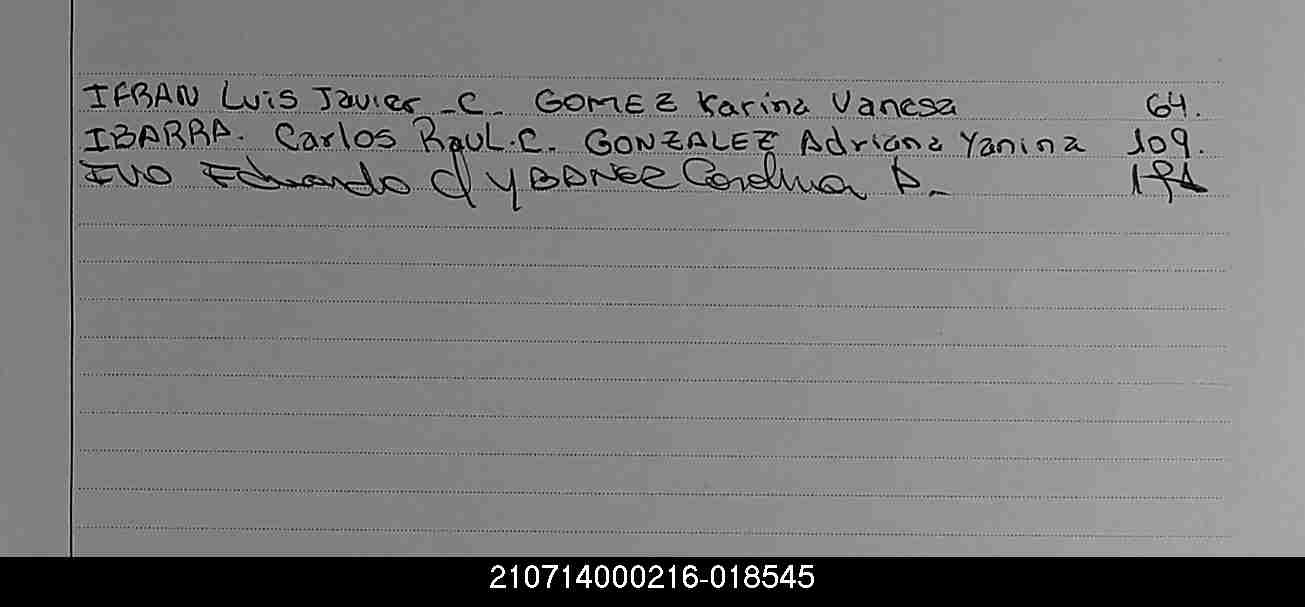 IFRAN Luis Javier _C_ GOMEZ Karina Vanesa 64.
IBARRA. Carlos Raul.C. GONZALEZ Adriana Yanina 109.
IVO Eduardo C/ YBAÑEZ A_
210714000216-018545